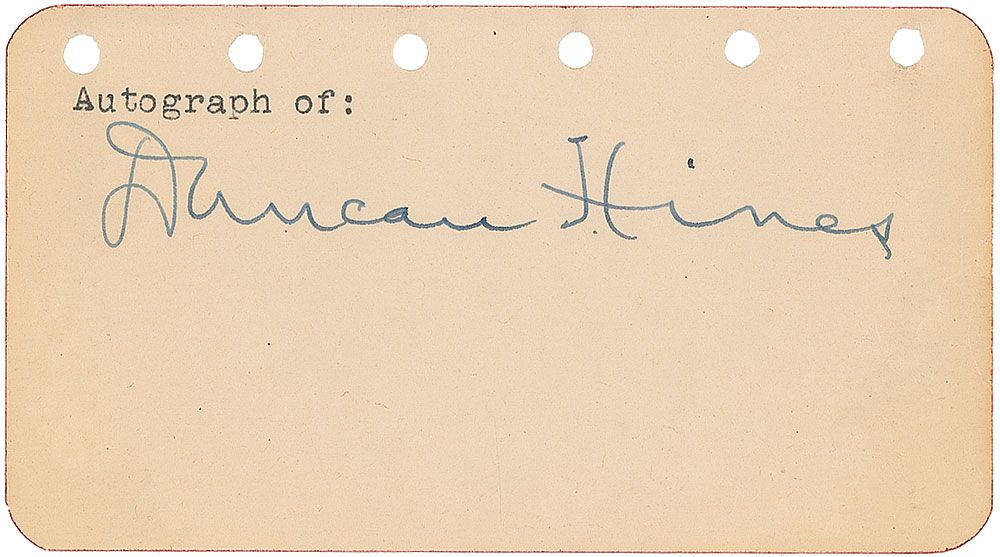 Autograph of:
Duncan Hines